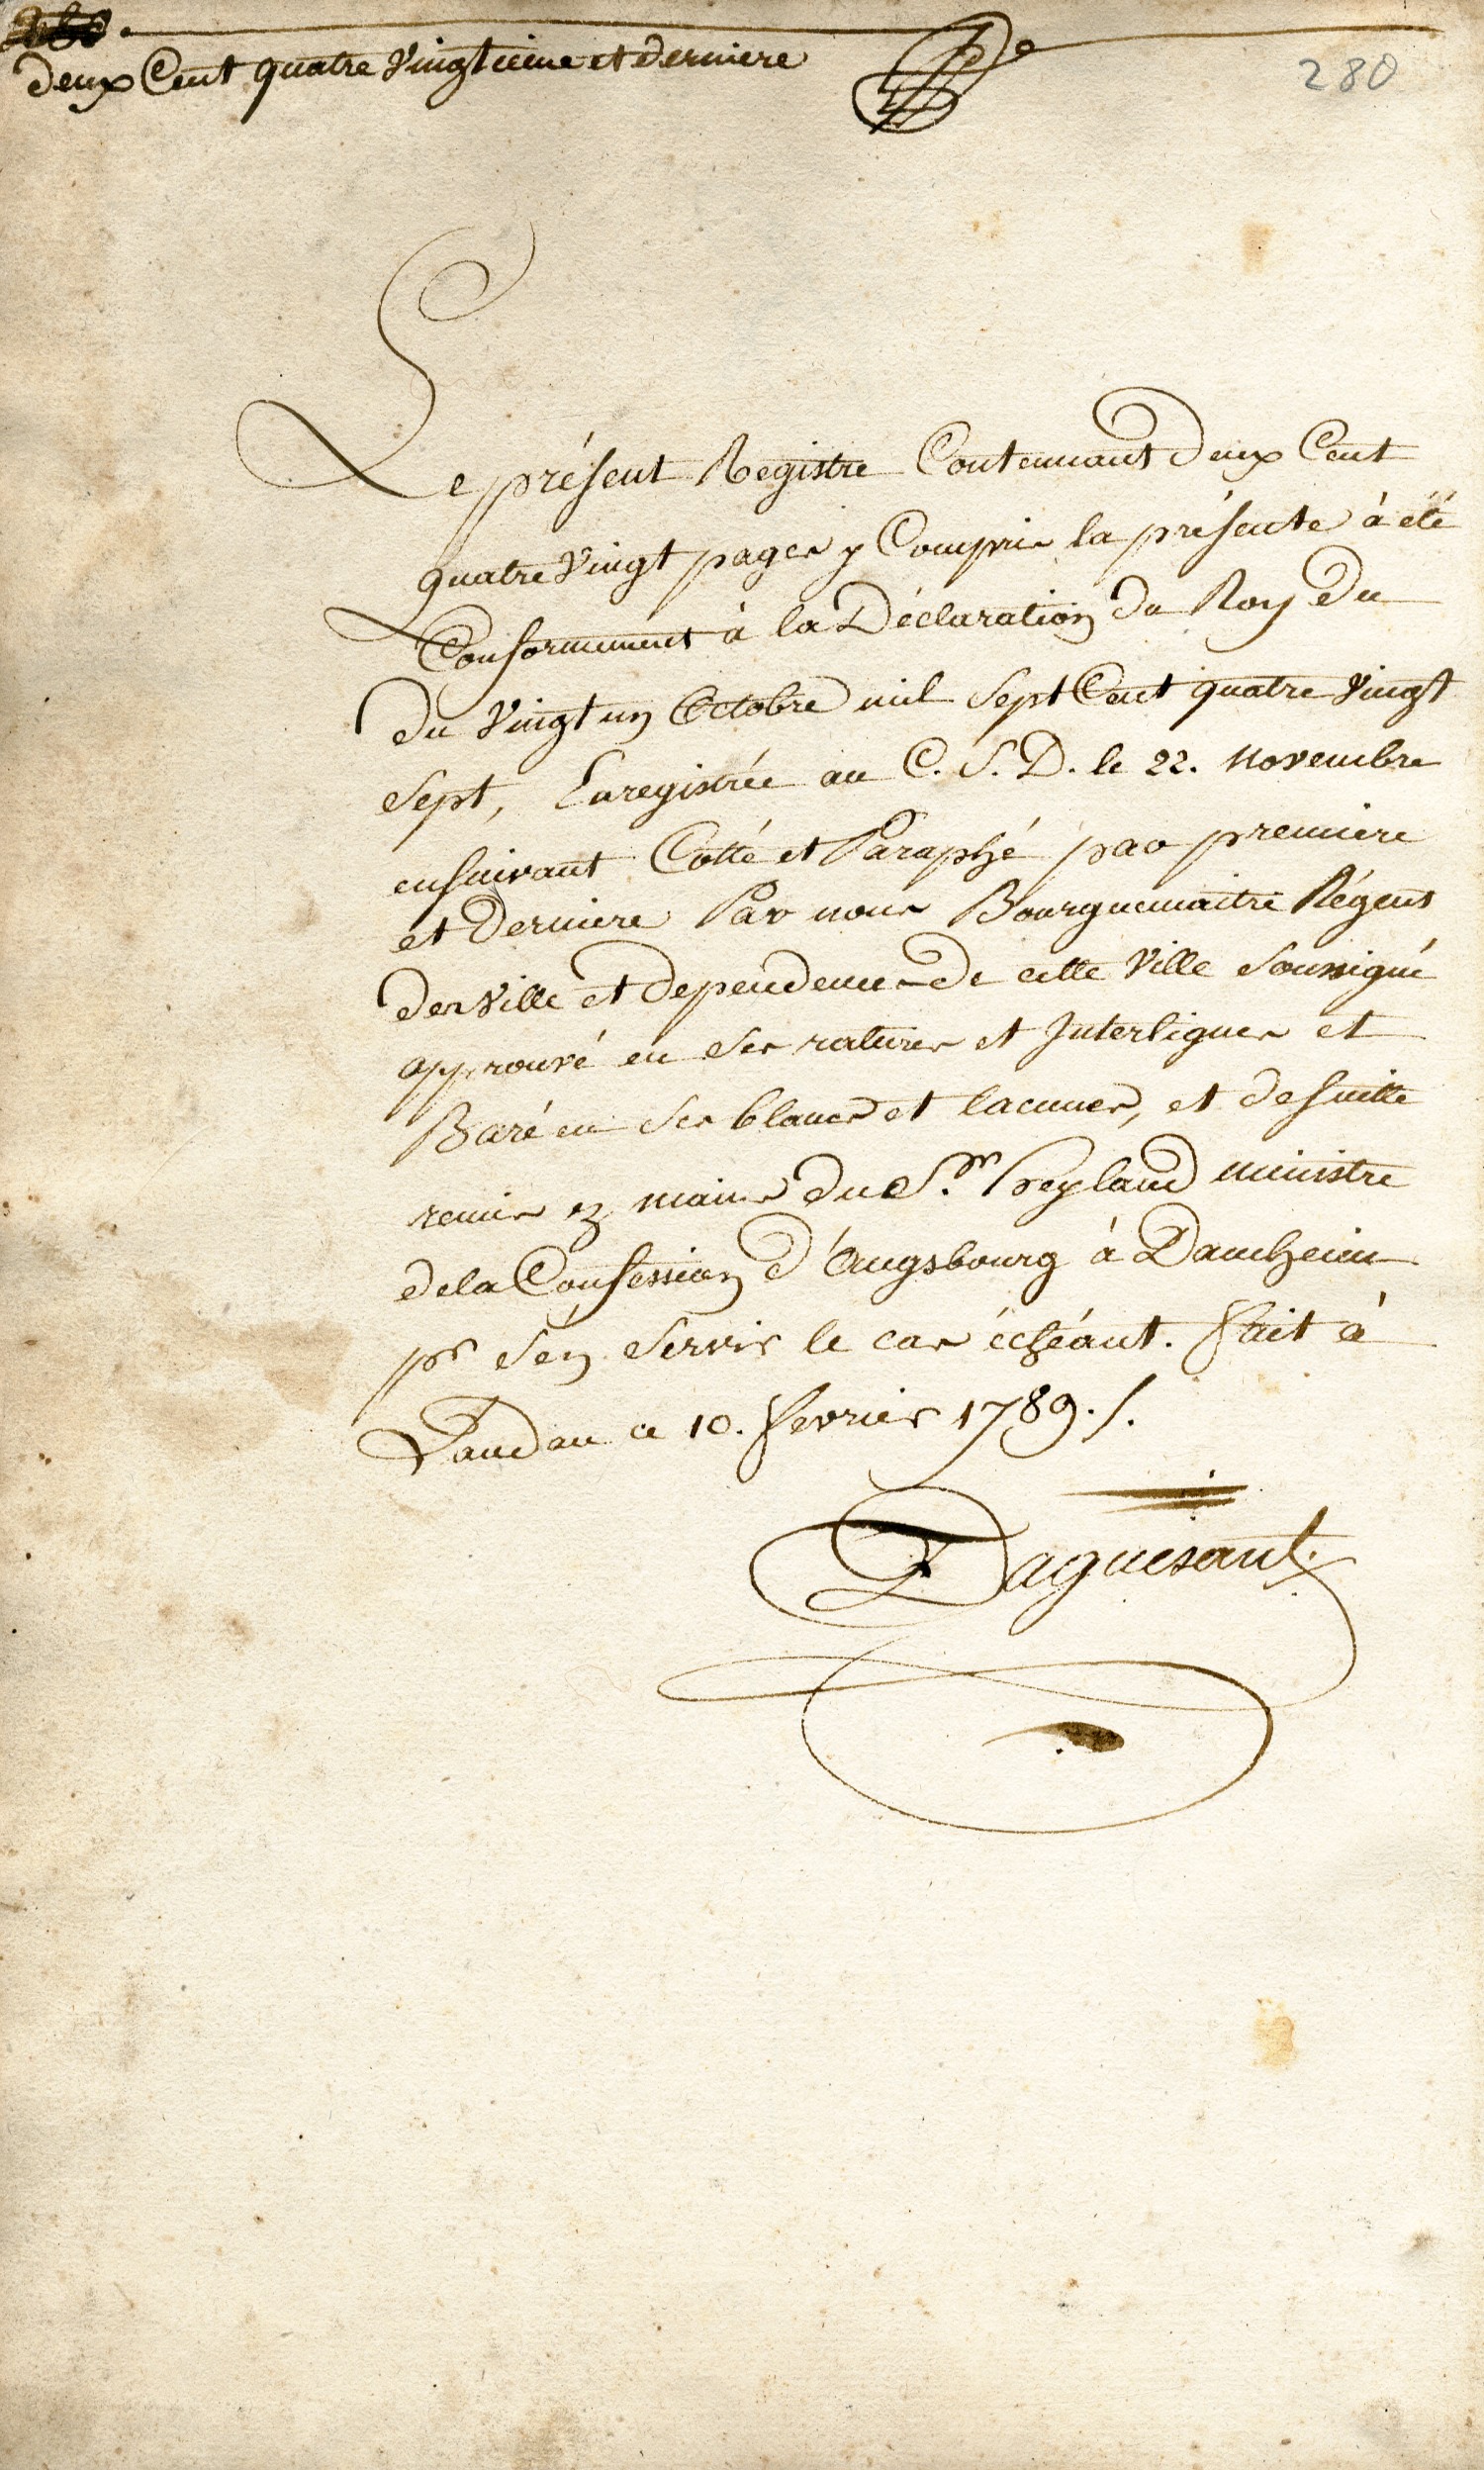 deux Cent quatre Vingtieme et derniere
280
Le présent Registre Contennant deux Cent
quatre Vingt pages y Compris la présente à été
Conformement à la Déclaration du Roy du
du Vingt un Octobre mil Sept Cent quatre Vingt
Sept, Enregistrée au C. S. D. le 22. Novembre
ensuivant Cotté et Paraphé par premiere
et derniere Par nous Bourguemaitre Régent
des Ville et dependences de cette Ville Soussigné
approuvé en Ses ratures et Interlignes et
Baré en Ses blancs et lacunes, et desuitte
remis ez mains du Sr. Heyland ministre
dela Confession d'Augsbourg à Damheim
pr s'en Servir le cas échéant. Fait à
Landau ce 10. fevrier 1789./.